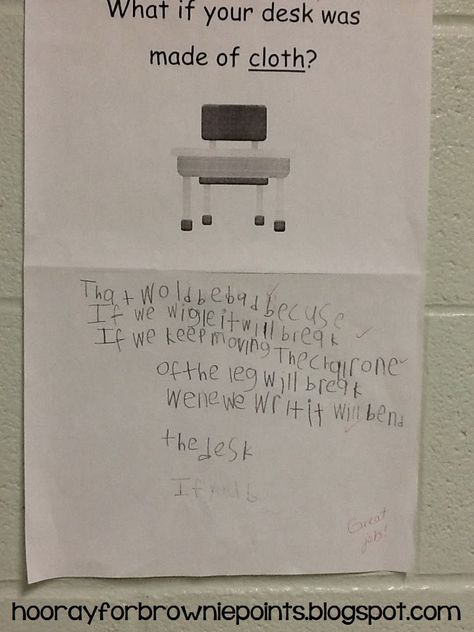 What if your desk was
made of cloth?
That wold be bad becuse
If we wigle it will break
If we keep moving The chair one
of the leg will break
wene we writ it will bend
the desk
If
Great
job!
hoorayforbrowniepoints.blogspot.com